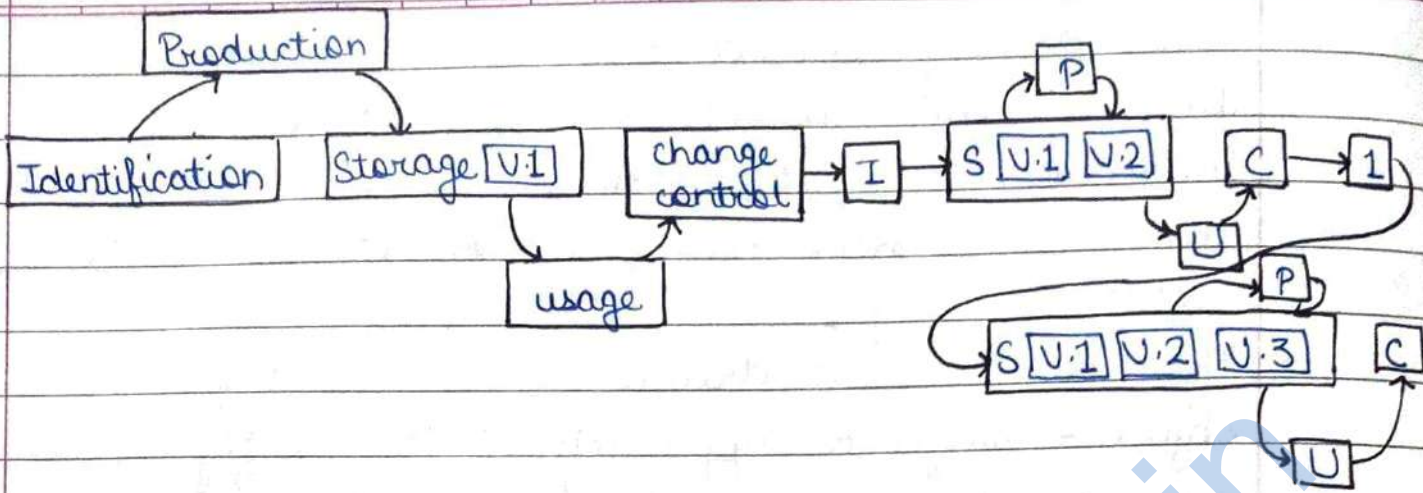 Production
Identification
Storage V.1
usage
change
control
I
P
S V.1 V.2
U
C
1
P
S V.1 V.2 V.3
U
C
in